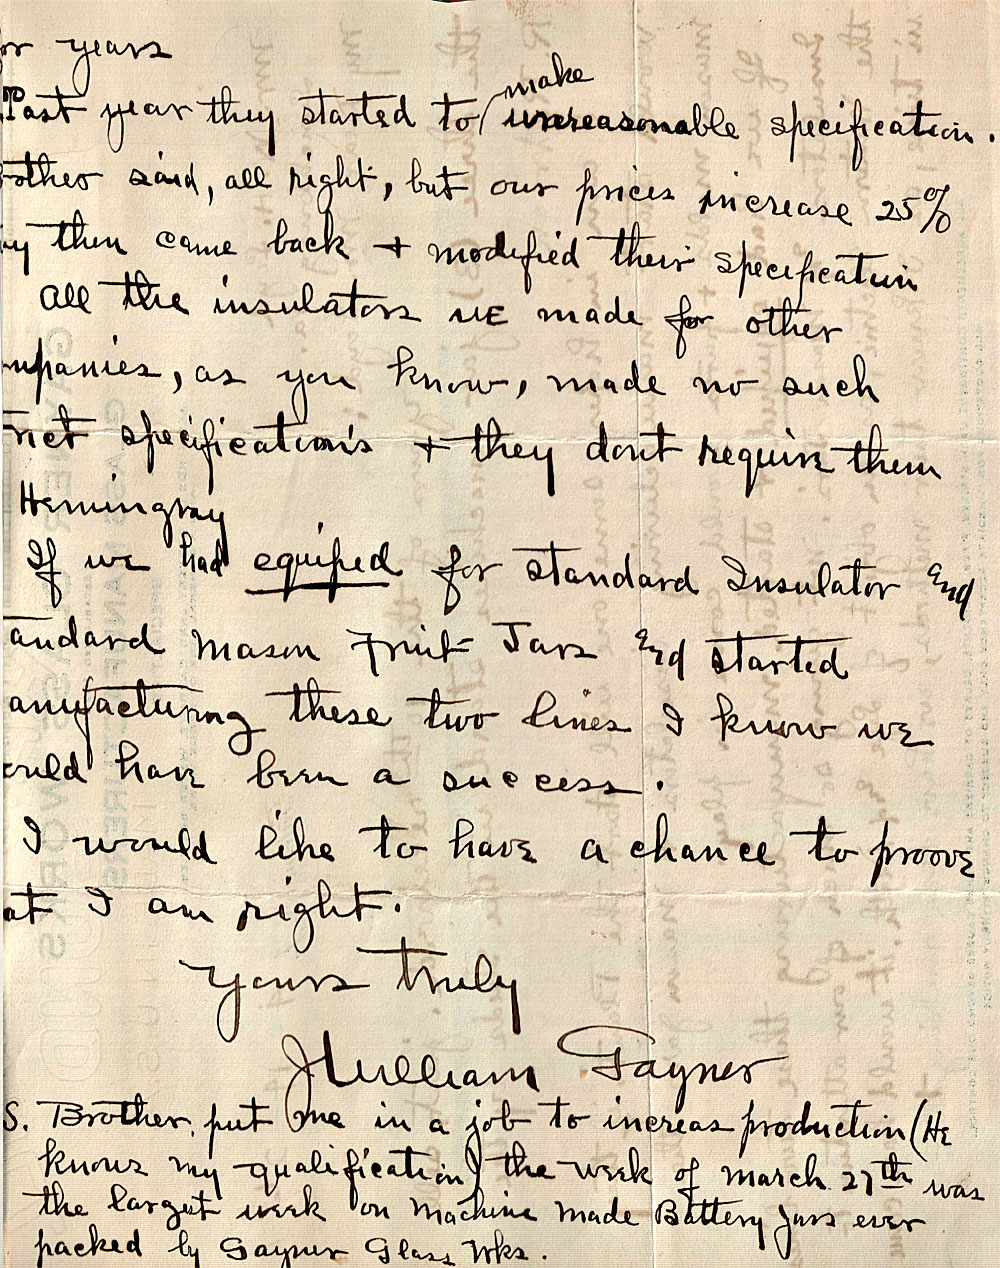 or years
Past year they started to make unreasonable specification.
other said, all right, but our prices increase 25%
ey then came back + modified their specification
All the insulators we made for other
mpanies, as you know, made no such
rict specifications + they dont require them
Hemingray
If we had equiped for standard Insulator and
andard Mason Fruit Jars and started
anufacturing these two lines I know we
ould have been a success.
I would like to have a chance to proove
at I am right.
Yours truly
J William Gayner
S. Brother, put me in a job to increas production (He
knows my qualification) the week of March 27th was
the largest week on Machine made Battery Jars ever
packed by Gayner Glass Wks.